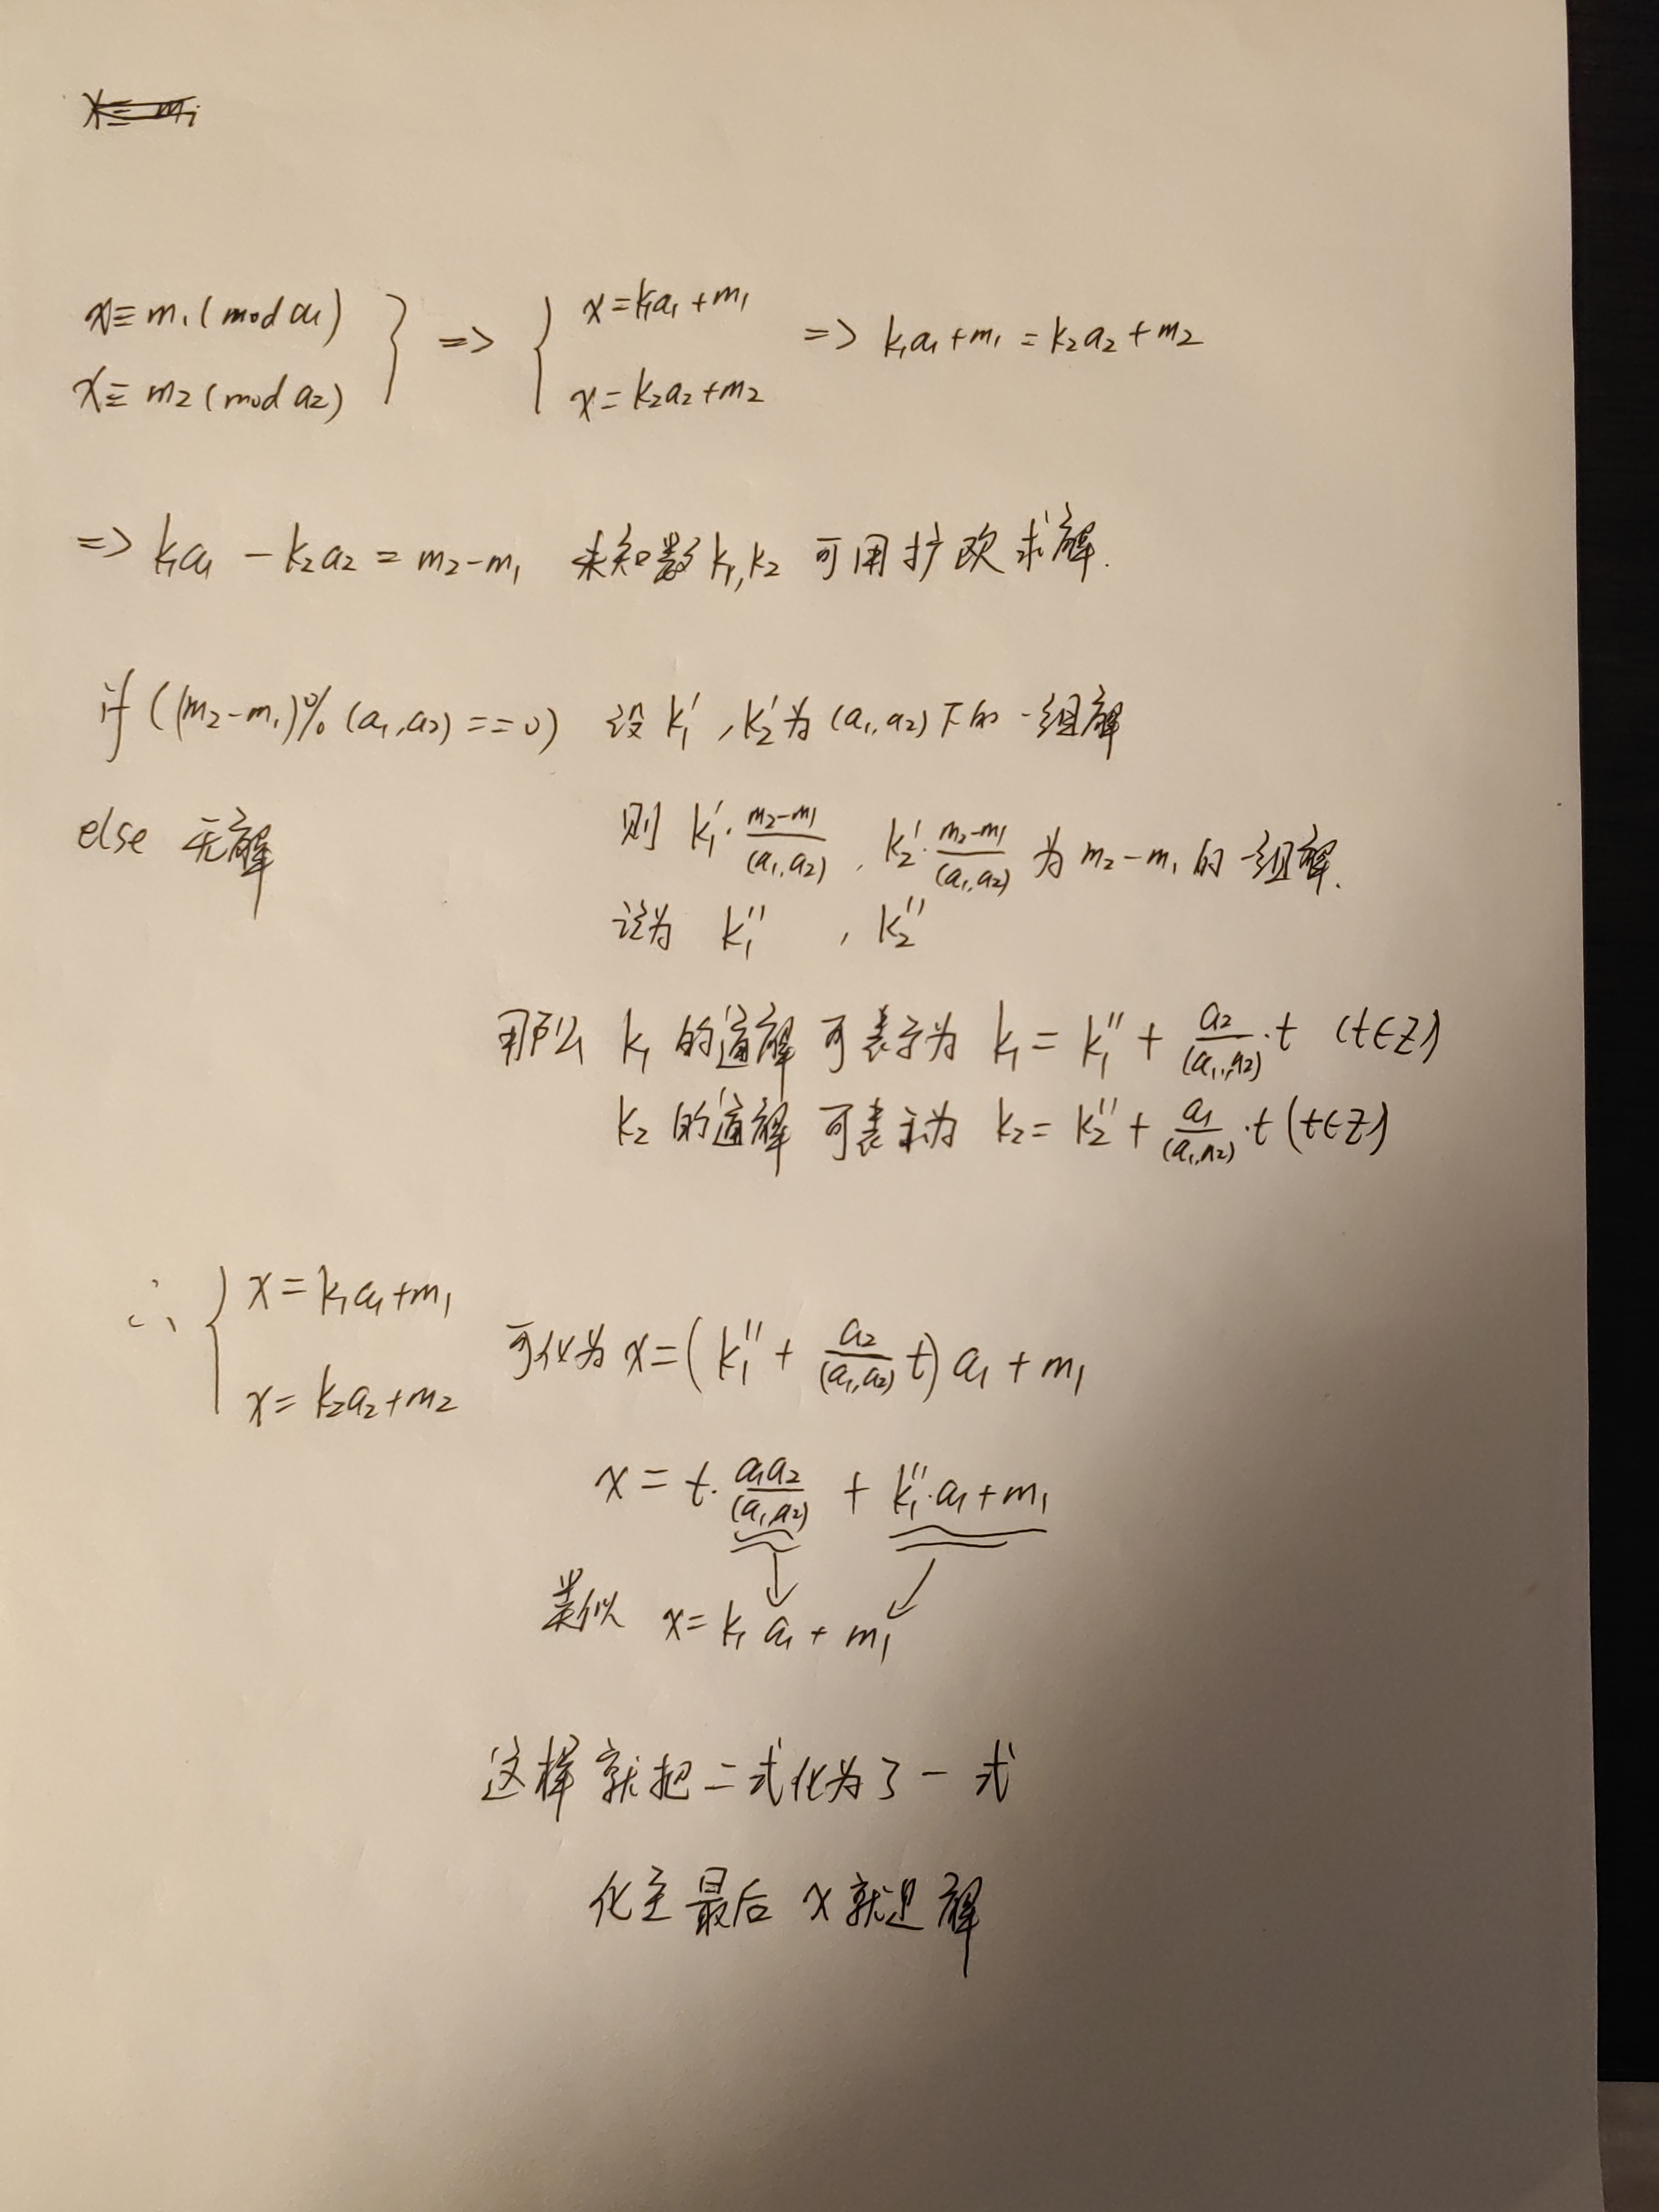 x≡m₁(mod a₁) } => { x=k₁a₁+m₁ => k₁a₁+m₁=k₂a₂+m₂
x≡m₂(mod a₂) x=k₂a₂+m₂
=> k₁a₁-k₂a₂=m₂-m₁ 未知数k₁,k₂可用扩欧求解.
if((m₂-m₁)%(a₁,a₂)==0) 设k₁′,k₂′为(a₁,a₂)下的一组解
else 无解 则 k₁′·(m₂-m₁)/(a₁,a₂), k₂′·(m₂-m₁)/(a₁,a₂) 为m₂-m₁的一组解.
设为 k₁″, k₂″
那么 k₁的通解可表示为 k₁=k₁″+a₂/(a₁,a₂)·t (t∈Z)
k₂的通解可表示为 k₂=k₂″+a₁/(a₁,a₂)·t (t∈Z)
∴ { x=k₁a₁+m₁
x=k₂a₂+m₂ 可化为 x=(k₁″+a₂/(a₁,a₂) t)a₁+m₁
x=t·a₁a₂/(a₁,a₂)+k₁″·a₁+m₁
类似 x=k₁a₁+m₁
这样就把二式化为了一式
化至最后x就是解